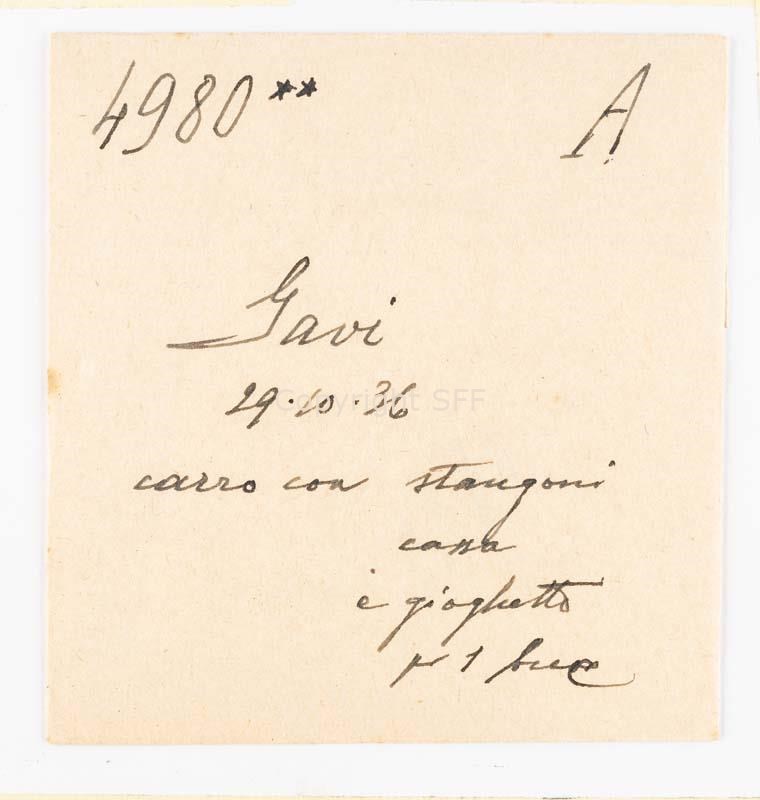 4980** A
Gavi
29.10.36
Copyright SFF
carro con stangoni
cassa
e gioghetto
pr 1 bue